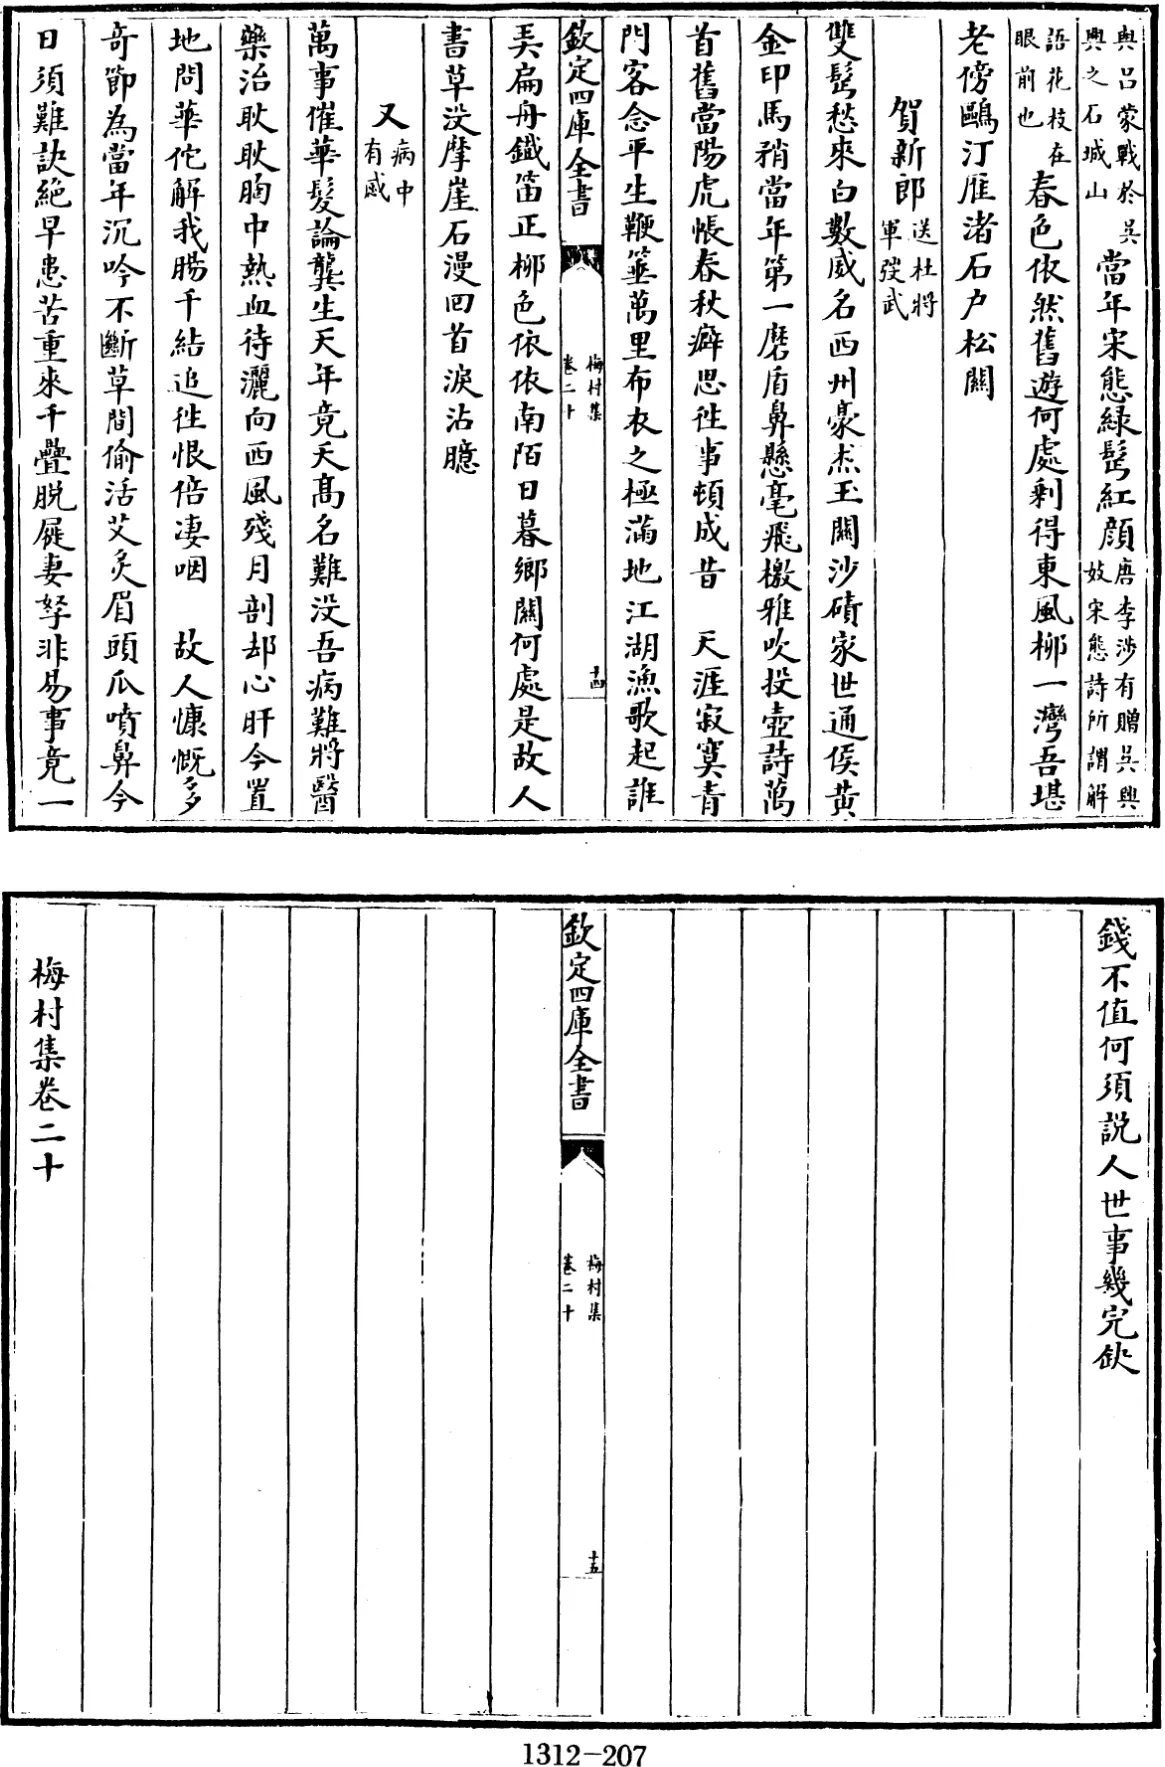 與呂蒙戰於吳興之石城山當年宋態綠髩紅顔唐李涉有贈吳興妓宋態詩所謂解
語花枝在眼前也春色依然舊遊何處剩得東風柳一灣吾堪
老傍鷗汀雁渚石户松闗
賀新郎送杜將軍弢武
雙髩愁來白數威名西州豪杰玉闗沙磧家世通侯黄
金印馬矟當年第一磨盾鼻懸毫飛檄雅吹投壺詩萬
首舊當陽虎帳春秋癖思徃事頓成昔　天涯寂寞青
門客念平生鞭箠萬里布衣之極滿地江湖漁歌起誰
欽定四庫全書
梅村集
卷二十
十四
弄扁舟鐡笛正栁色依依南陌日暮鄉闗何處是故人
書草没摩崖石漫回首淚沾臆
又病中有感
萬事催華髮論龔生天年竟夭髙名難没吾病難將醫
藥治耿耿胸中熱血待灑向西風殘月剖却心肝今置
地問華佗解我腸千結追徃恨倍凄咽　故人慷慨多
奇節為當年沉吟不斷草間偷活艾灸眉頭瓜噴鼻今
日須難訣絶早患苦重來千疊脱屣妻孥非易事竟一
錢不值何須説人世事幾完缺
欽定四庫全書
梅村集
卷二十
十五
梅村集卷二十
1312-207